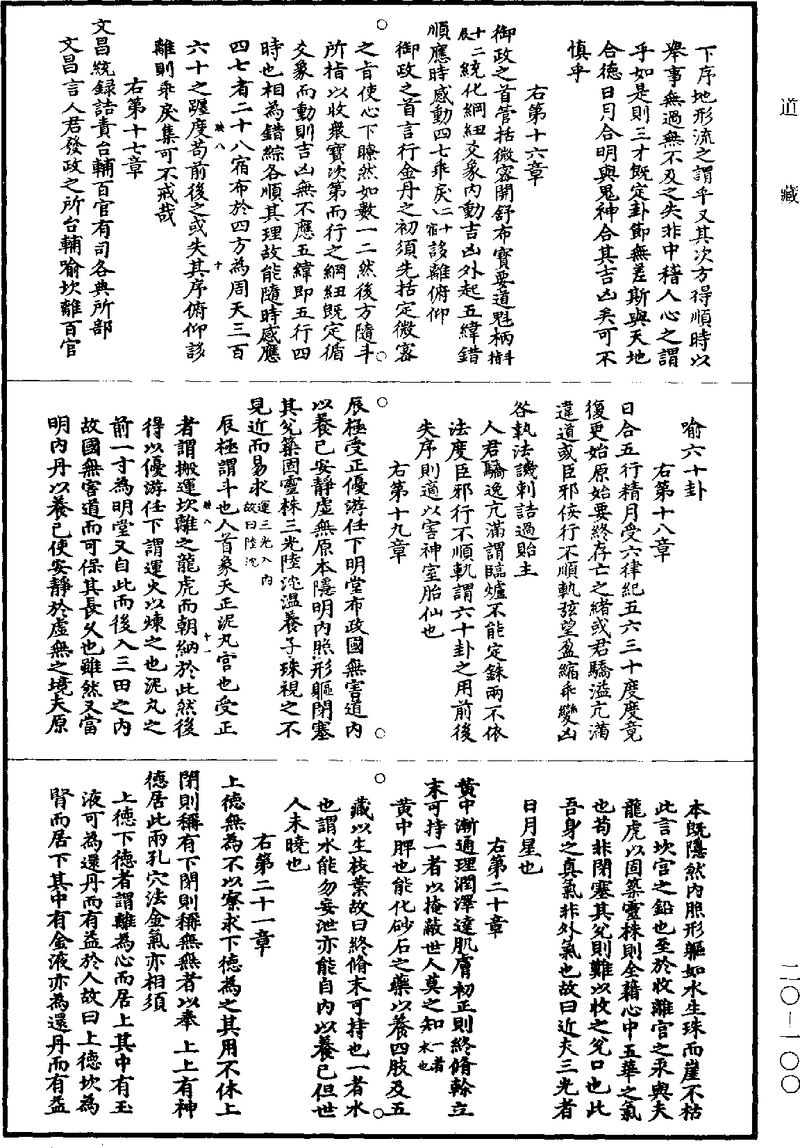 道藏
下序地形流之謂乎又其次方得順時以
舉事無過無不及之失非中稽人心之謂
乎如是則三才既定卦節無差斯與天地
合德日月合明與鬼神合其吉凶矣可不
慎乎
右第十六章
御政之首管括微密開舒布寶要道魁柄
十二辰統化綱紐爻象內動吉凶外起五緯錯
順應時感動四七乖戾二十八宿誃離俯仰
御政之首言行金丹之初須先括定微密
之旨使心下瞭然如數一二然後方隨斗
所指以收衆寶次第而行之綱紐既定循
爻象而動則吉凶無不應五緯即五行四
時也相為錯綜各順其理故能隨時感應
四七者二十八宿布於四方為周天三百
六十之躔度苟前後之或失其序俯仰誃
離則乖戾集可不戒哉
右第十七章
文昌統録詰責台輔百官有司各典所部
文昌言人君發政之所台輔喻坎離百官
喻六十卦
右第十八章
日合五行精月受六律紀五六三十度度竟
復更始原始要終存亡之緒或君驕溢亢滿
違道或臣邪佞行不順軌弦望盈縮乖變凶
咎執法譏刺詰過貽主
人君驕逸亢滿謂臨爐不能定銖兩不依
法度臣邪行不順軌謂六十卦之用前後
失序則適以害神室胎仙也
右第十九章
辰極受正優游任下明堂布政國無害道內
以養己安靜虛無原本隱明內照形軀閉塞
其兌築固靈株三光陸沈溫養子珠視之不
見近而易求運三光入內故曰陸沈
辰極謂斗也人首象天正泥丸宮也受正
者謂搬運坎離之龍虎而朝納於此然後
得以優游任下謂運火以煉之也泥丸之
前一寸為明堂又自此而後入三田之內
故國無害道而可保其長久也雖然又當
明內丹以養己使安靜於虛無之境夫原
本既隱然內照形軀如水生珠而崖不枯
此言坎宮之鉛也至於收離宮之汞與夫
龍虎以固築靈株則全藉心中五華之氣
也苟非閉塞其兌則難以收之兌口也此
吾身之真氣非外氣也故曰近夫三光者
日月星也
右第二十章
黃中漸通理潤澤達肌膚初正則終脩榦立
末可持一者以掩蔽世人莫之知一者水也
黃中脾也能化砂石之藥以養四肢及五
藏以生枝葉故曰終脩末可持也一者水
也謂水能勿妄泄亦能自內以養己但世
人未曉也
右第二十一章
上德無為不以察求下德為之其用不休上
閉則稱有下閉則稱無無者以奉上上有神
德居此兩孔穴法金氣亦相須
上德下德者謂離為心而居上其中有玉
液可為還丹而有益於人故曰上德坎為
腎而居下其中有金液亦為還丹而有益
二〇—一〇〇